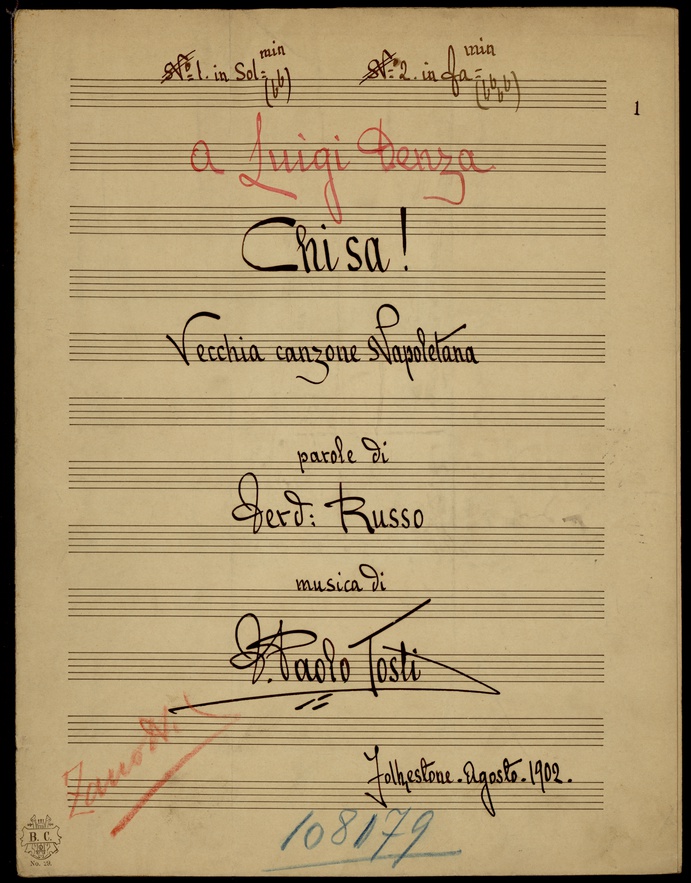 No 1. in Sol= min (bb)
No= 2. in fa= min (bbbb)
1
a Luigi Denza
Chi sa!
Vecchia canzone Napoletana
parole di
Ferd: Russo
musica di
F. Paolo Tosti
Folkestone. Agosto. 1902.
108179
B. C.
No. 29.